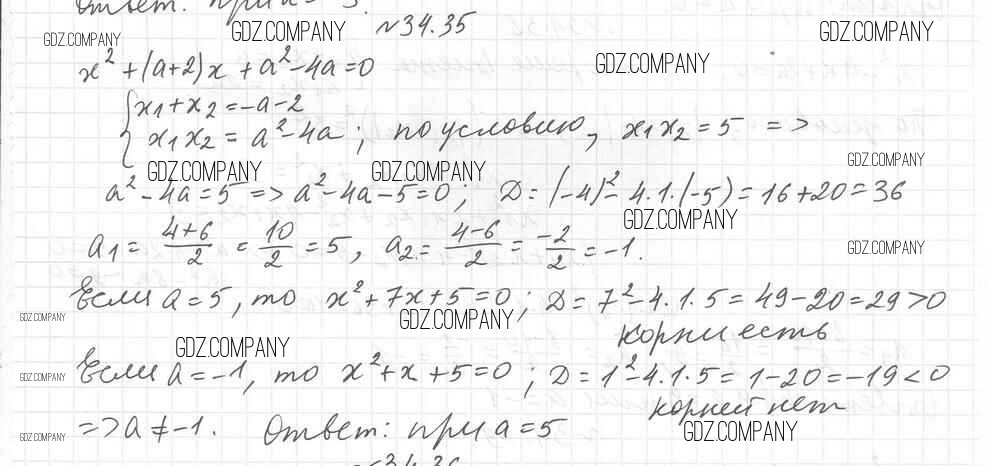 Ответ: при а = 3.
№34.35
GDZ.COMPANY GDZ.COMPANY GDZ.COMPANY
x² + (a+2)x + a² - 4a = 0
GDZ.COMPANY
{ x₁ + x₂ = -a - 2
x₁x₂ = a² - 4a ; по условию, x₁x₂ = 5 =>
GDZ.COMPANY GDZ.COMPANY GDZ.COMPANY
a² - 4a = 5 => a² - 4a - 5 = 0 ; D = (-4)² - 4·1·(-5) = 16 + 20 = 36
GDZ.COMPANY
a₁ = (4+6)/2 = 10/2 = 5, a₂ = (4-6)/2 = -2/2 = -1.
GDZ.COMPANY
Если a = 5, то x² + 7x + 5 = 0 ; D = 7² - 4·1·5 = 49 - 20 = 29 > 0
GDZ.COMPANY GDZ.COMPANY
корни есть
GDZ.COMPANY
Если a = -1, то x² + x + 5 = 0 ; D = 1² - 4·1·5 = 1 - 20 = -19 < 0
GDZ.COMPANY
корней нет
=> a ≠ -1. Ответ: при a = 5
GDZ.COMPANY GDZ.COMPANY
№34.36